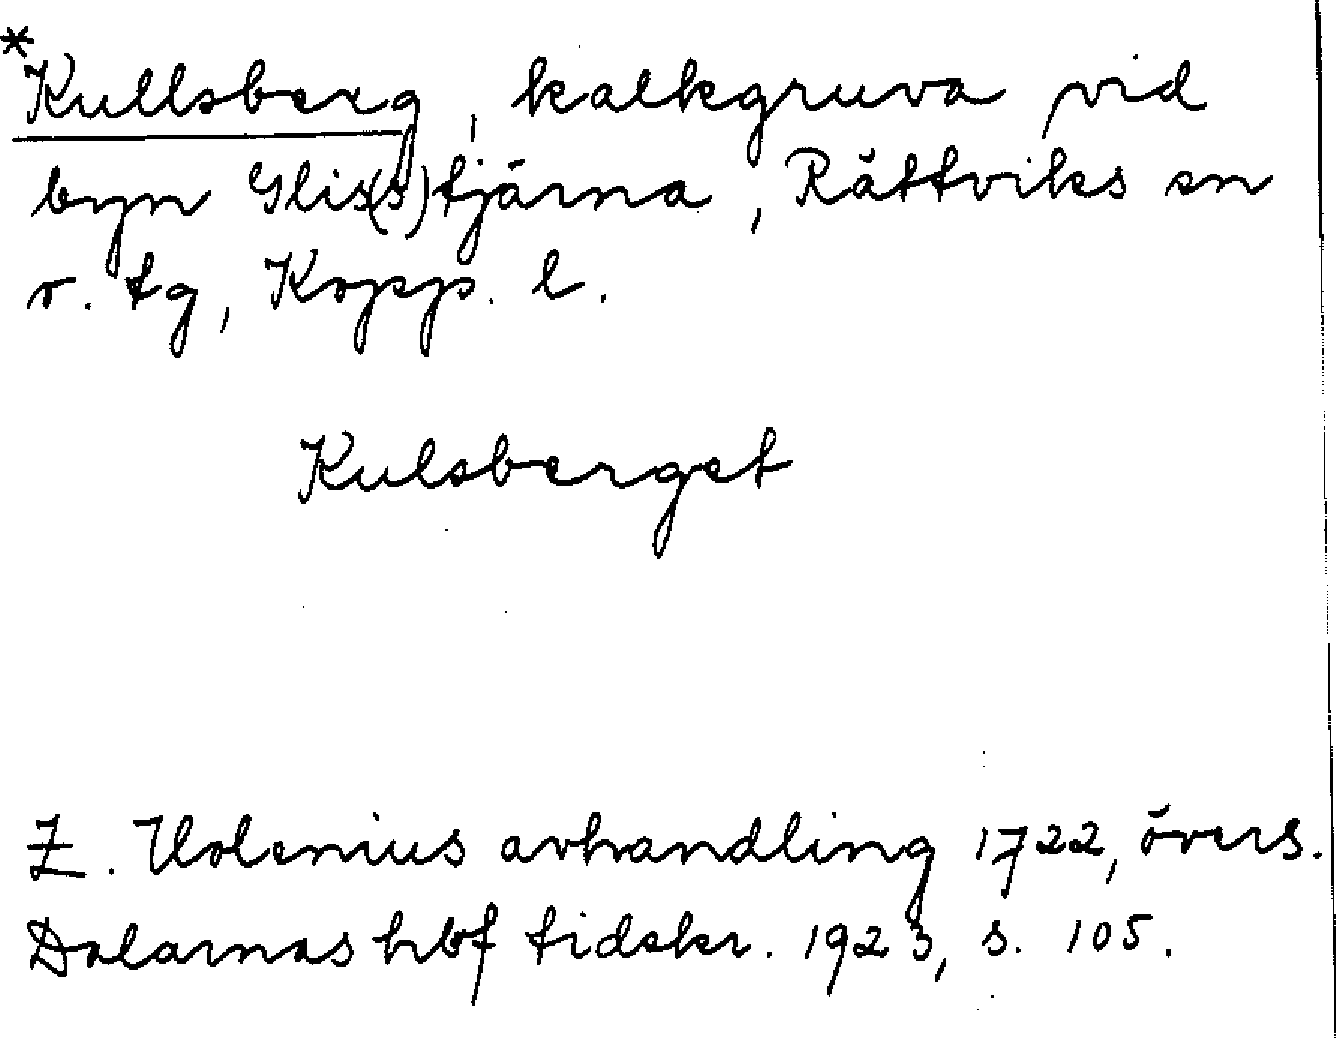 *Kullsberg, kalkgruva vid
byn Glis(s)tjärna, Rättviks sn
o. tg, Kopp. l.
Kulsberget
Z. Holenius avhandling 1722, övers.
Dalarnas hbf tidskr. 1923, s. 105.